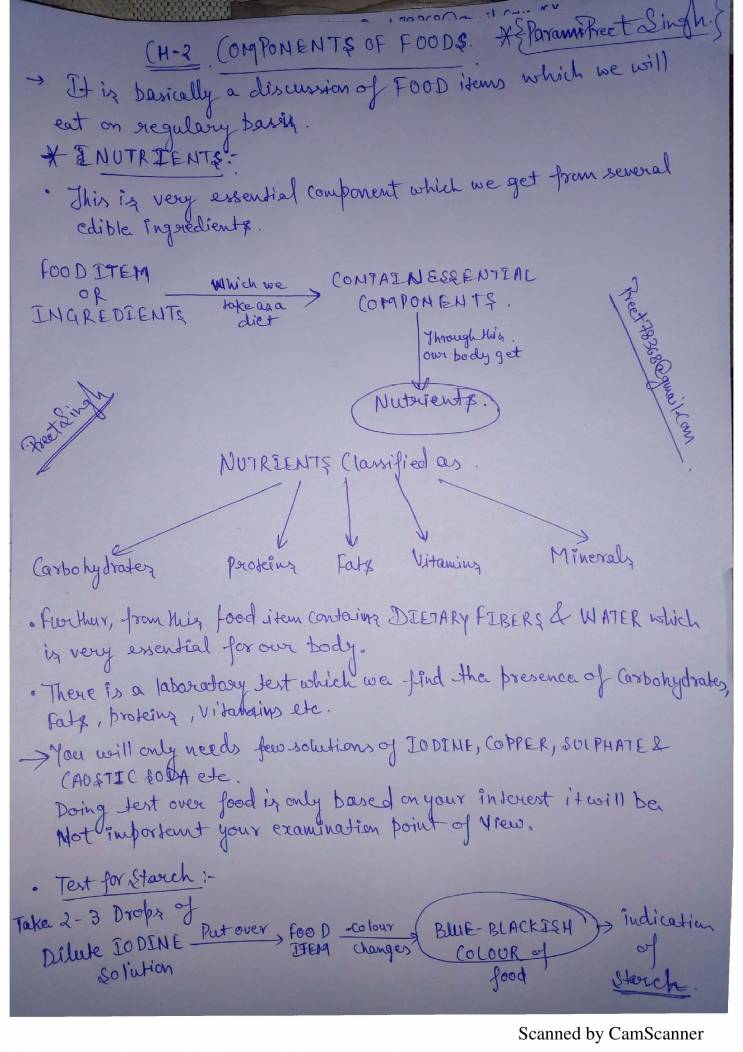 CH-2 COMPONENTS OF FOODS. *{ParamPreet Singh.}
→ It is basically a discussion of FOOD items which we will
eat on regulary basis.
* NUTRIENTS:-
• This is very essential component which we get from several
edible ingredients.
FOOD ITEM
OR
INGREDIENTS
Which we
take as a
diet
CONTAIN ESSENTIAL
COMPONENTS.
Through this
our body get
Nutrients.
Preet78368@gmail.com
Preet Singh
NUTRIENTS Classified as
Carbohydrates Proteins Fats Vitamins Minerals
• Further, from this food item contains DIETARY FIBERS & WATER which
is very essential for our body.
• There is a labaratary test which we find the presence of Carbohydrates,
fats, proteins, vitamins etc.
→ You will only needs few solutions of IODINE, COPPER, SULPHATE &
CAOSTIC SODA etc.
Doing test over food is only based on your interest it will be
Not important your examination point of view.
• Test for Starch :-
Take 2-3 Drops of
Dilute IODINE
Solution
Put over
FOOD
ITEM
colour
changes
BLUE-BLACKISH
COLOUR of
food
indication
of
Starch.
Scanned by CamScanner